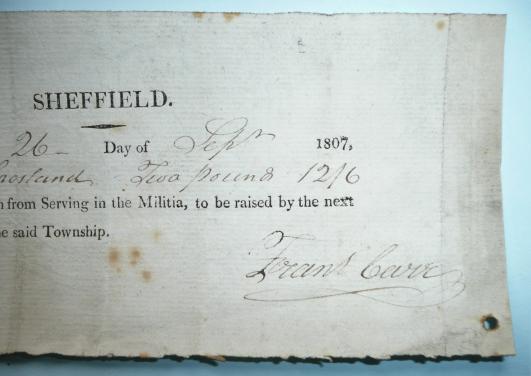 SHEFFIELD.
26 Day of Sept 1807,
rosland Two pound 12/6
n from Serving in the Militia, to be raised by the next
e said Township.
Frans Carr